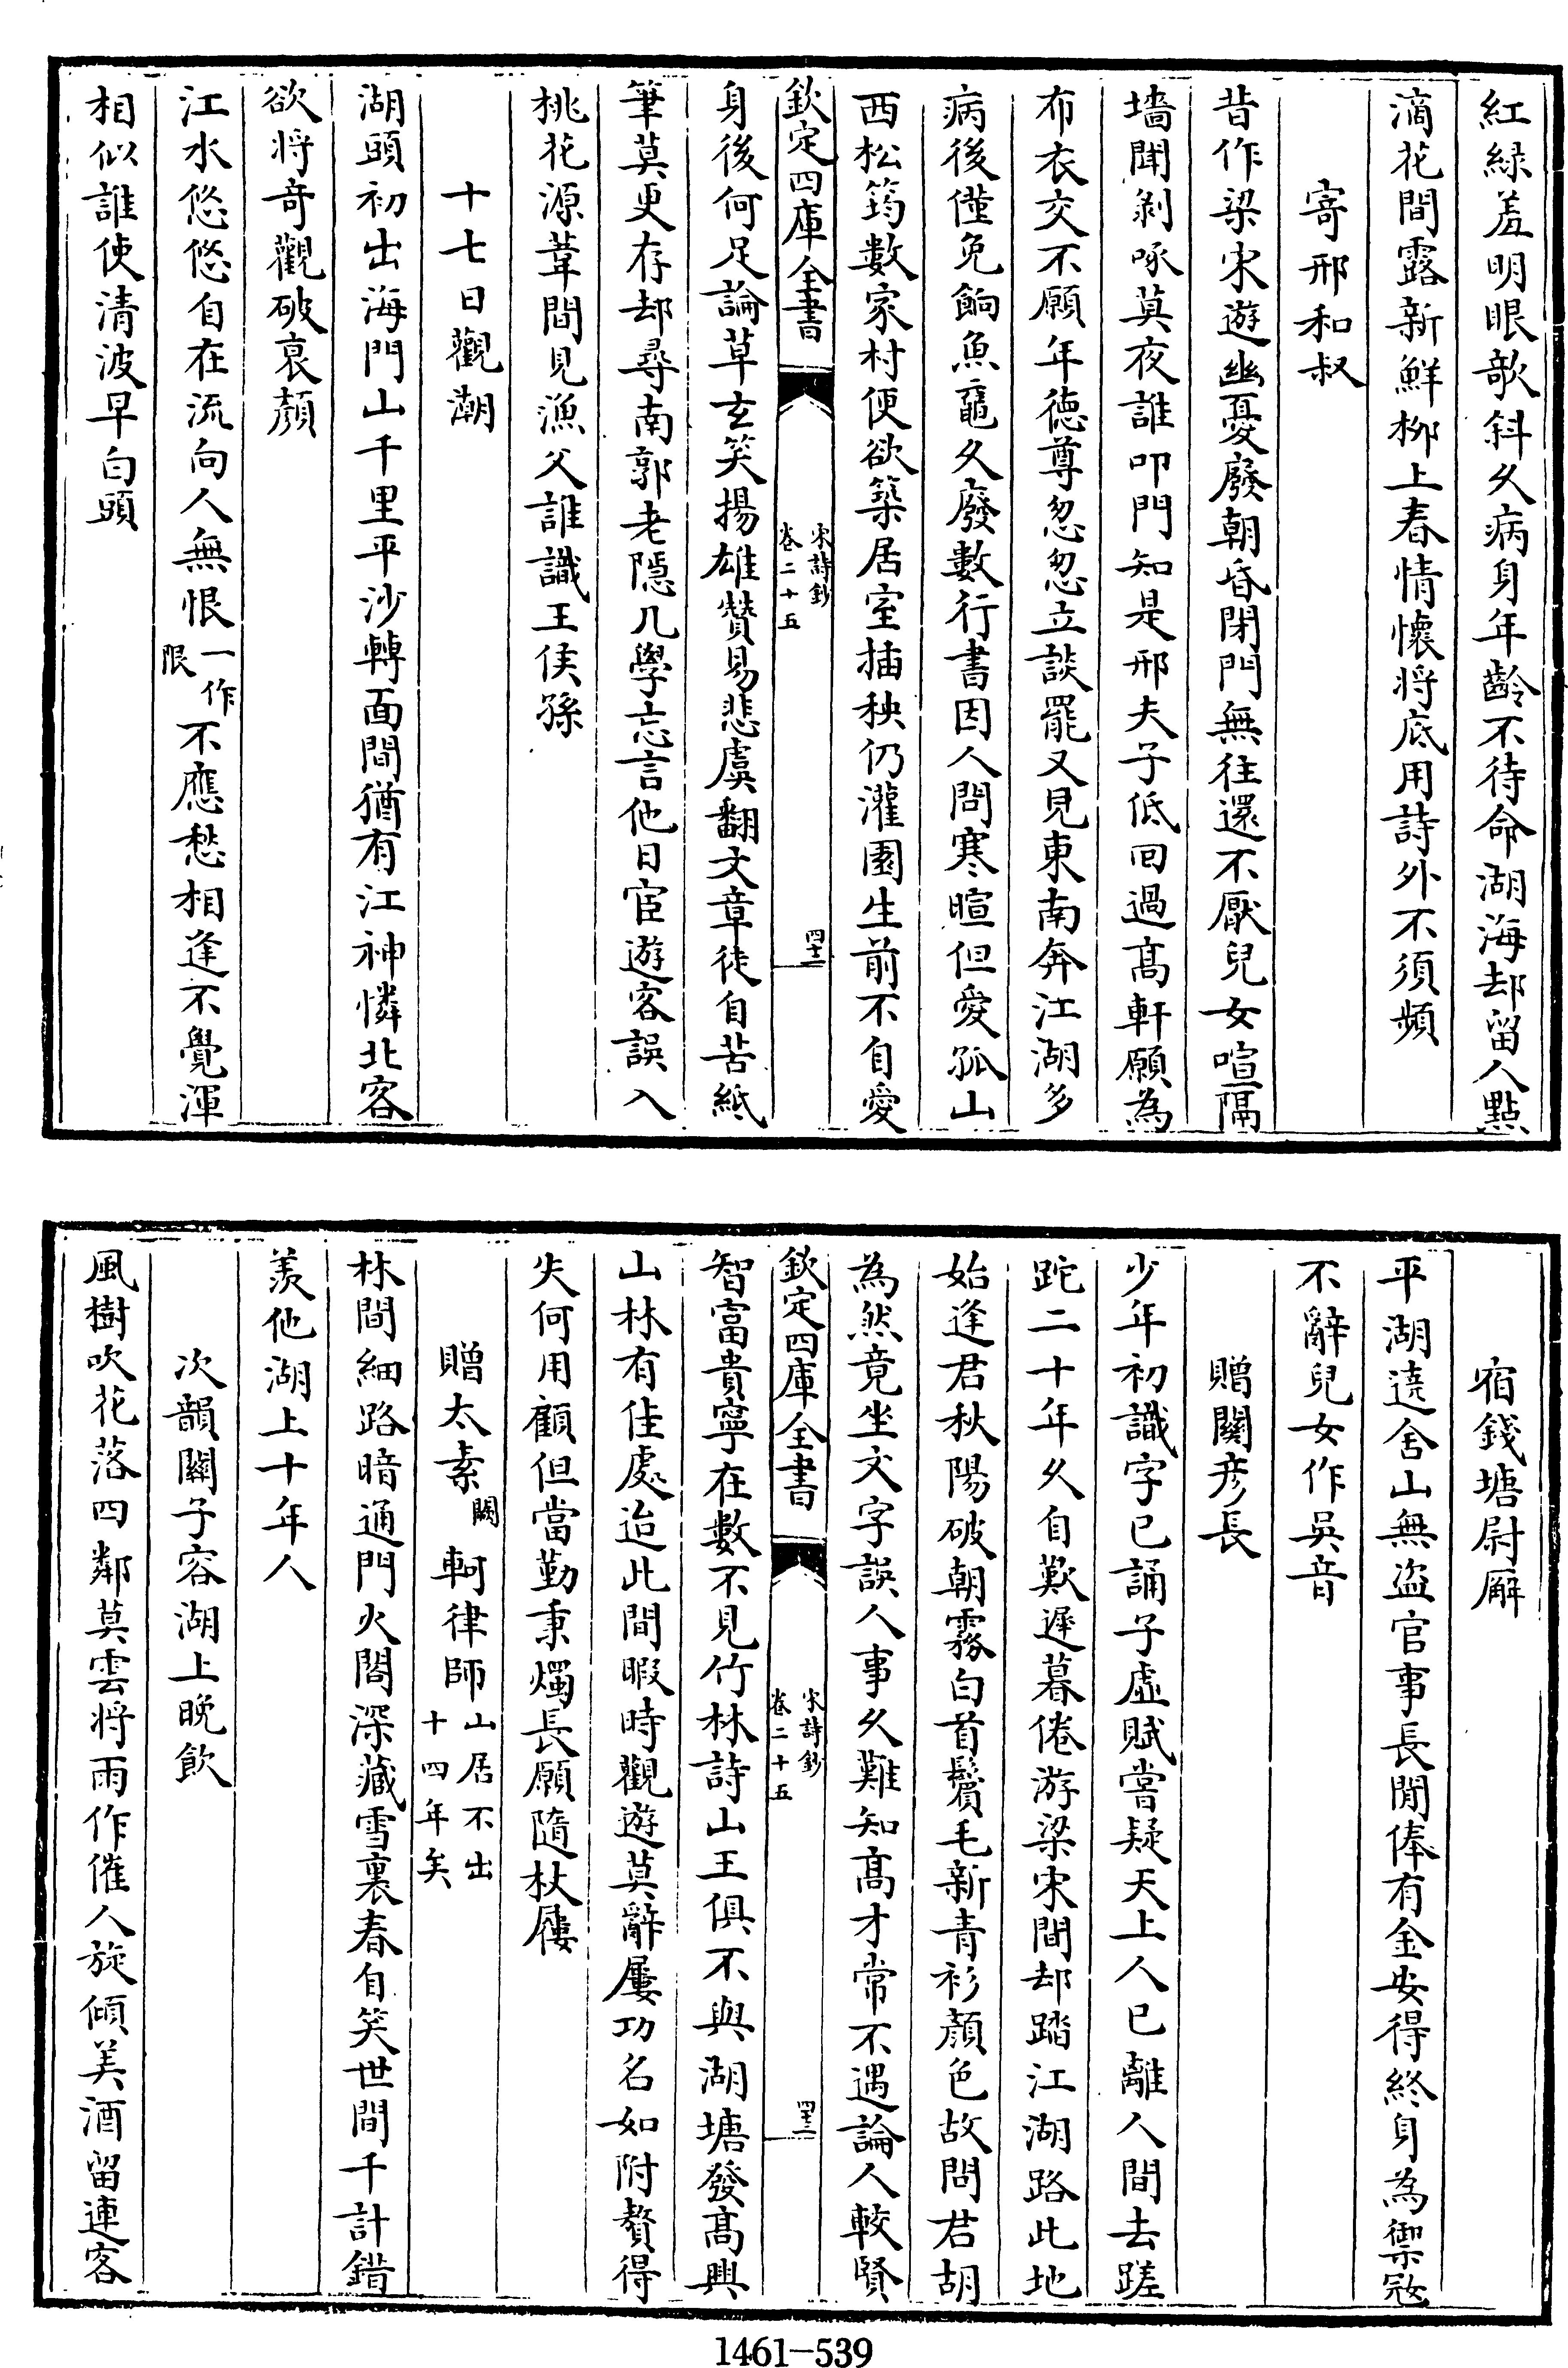 紅緑羞明眼欹斜久病身年齡不待命湖海却留人點
滴花間露新鮮柳上春情懷将底用詩外不須頻
寄邢和叔
昔作梁宋遊幽憂廢朝昏閉門無往還不厭兒女喧隔
墻聞剝啄莫夜誰叩門知是邢夫子低回過髙軒願為
布衣交不願年德尊忽忽立談罷又見東南奔江湖多
病後僅免餉魚黿久廢數行書因人問寒暄但愛孤山
西松筠數家村便欲築居室插秧仍灌園生前不自愛
欽定四庫全書
宋詩鈔
卷二十五
四十二
身後何足論草玄笑揚雄贊易悲虞翻文章徒自苦紙
筆莫更存却尋南郭老隠几學忘言他日宦遊客誤入
桃花源葦間見漁父誰識王侯孫
十七日觀潮
湖頭初出海門山千里平沙轉面間猶有江神憐北客
欲将奇觀破衰顔
江水悠悠自在流向人無恨一作限不應愁相逢不覺渾
相似誰使清波早白頭
宿錢塘尉廨
平湖遶舍山無盗官事長閒俸有金安得終身為禦寇
不辭兒女作吳音
贈關彦長
少年初識字已誦子虚賦嘗疑天上人已離人間去蹉
跎二十年久自歎遲暮倦游梁宋間却踏江湖路此地
始逢君秋陽破朝霧白首鬢毛新青衫顔色故問君胡
為然竟坐文字誤人事久難知髙才常不遇論人較賢
欽定四庫全書
宋詩鈔
卷二十五
四十三
智富貴寧在數不見竹林詩山王俱不與湖塘發髙興
山林有佳處迨此間暇時觀遊莫辭屢功名如附贅得
失何用顧但當勤秉燭長願隨杖屨
贈太素闕軻律師山居不出十四年矣
林間細路暗通門火閤深藏雪裏春自笑世間千計錯
羨他湖上十年人
次韻關子容湖上晚飲
風樹吹花落四鄰莫雲将雨作催人旋傾美酒留連客
1461-539